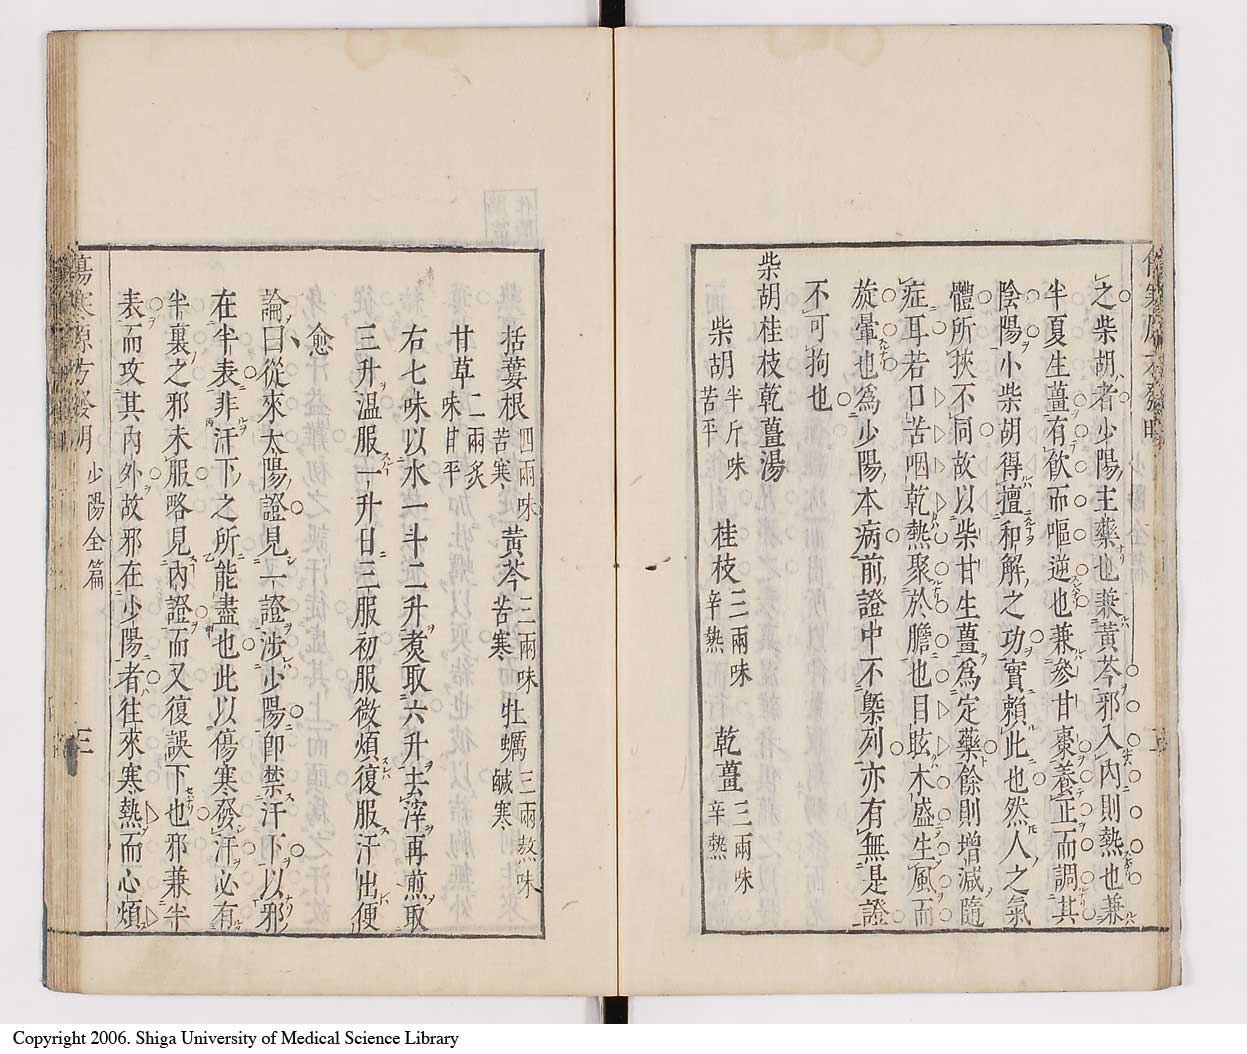 之柴胡者少陽主藥也兼黃芩邪入內則熱也兼
半夏生薑有飲而嘔逆也兼參甘棗養正而調其
陰陽小柴胡得擅和解之功實賴此也然人之氣
體所挾不同故以柴甘生薑爲定藥餘則增減隨
症耳若口苦咽乾熱聚於膽也目眩木盛生風而
旋暈也爲少陽本病前證中不槩列亦有無是證
不可拘也
柴胡桂枝乾薑湯
柴胡半斤味苦平 桂枝三兩味辛熱 乾薑三兩味辛熱
括蔞根四兩味苦寒 黃芩三兩味苦寒 牡蠣三兩熬味鹹寒
甘草二兩炙味甘平
右七味以水一斗二升煑取六升去滓再煎取
三升溫服一升日三服初服微煩復服汗出便
愈
論曰從來太陽證見一證涉少陽卽禁汗下以邪
在半表非汗下之所能盡也此以傷寒發汗必有
半裏之邪未服略見內證而又復誤下也邪兼半
表而攻其內外故邪在少陽者往來寒熱而心煩
少陽全篇
三
Copyright 2006. Shiga University of Medical Science Library